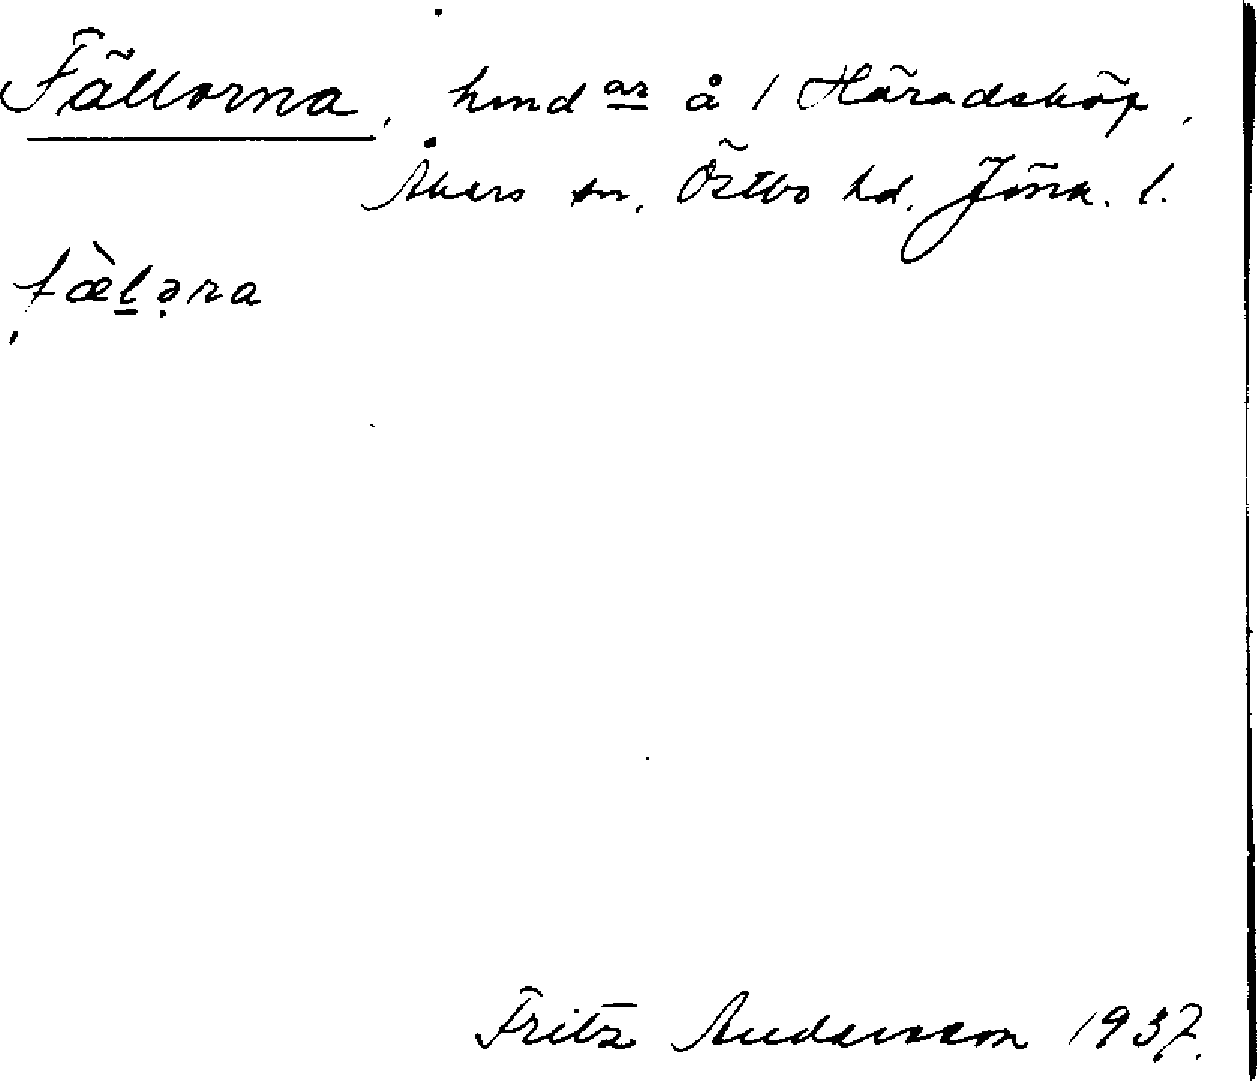 Fällorna, hmd ar å 1 Häradsköp,
Åkers sn, Östbo hd. Jönk. l.
fæ̀lǝra
Fritz Andersson 1937.